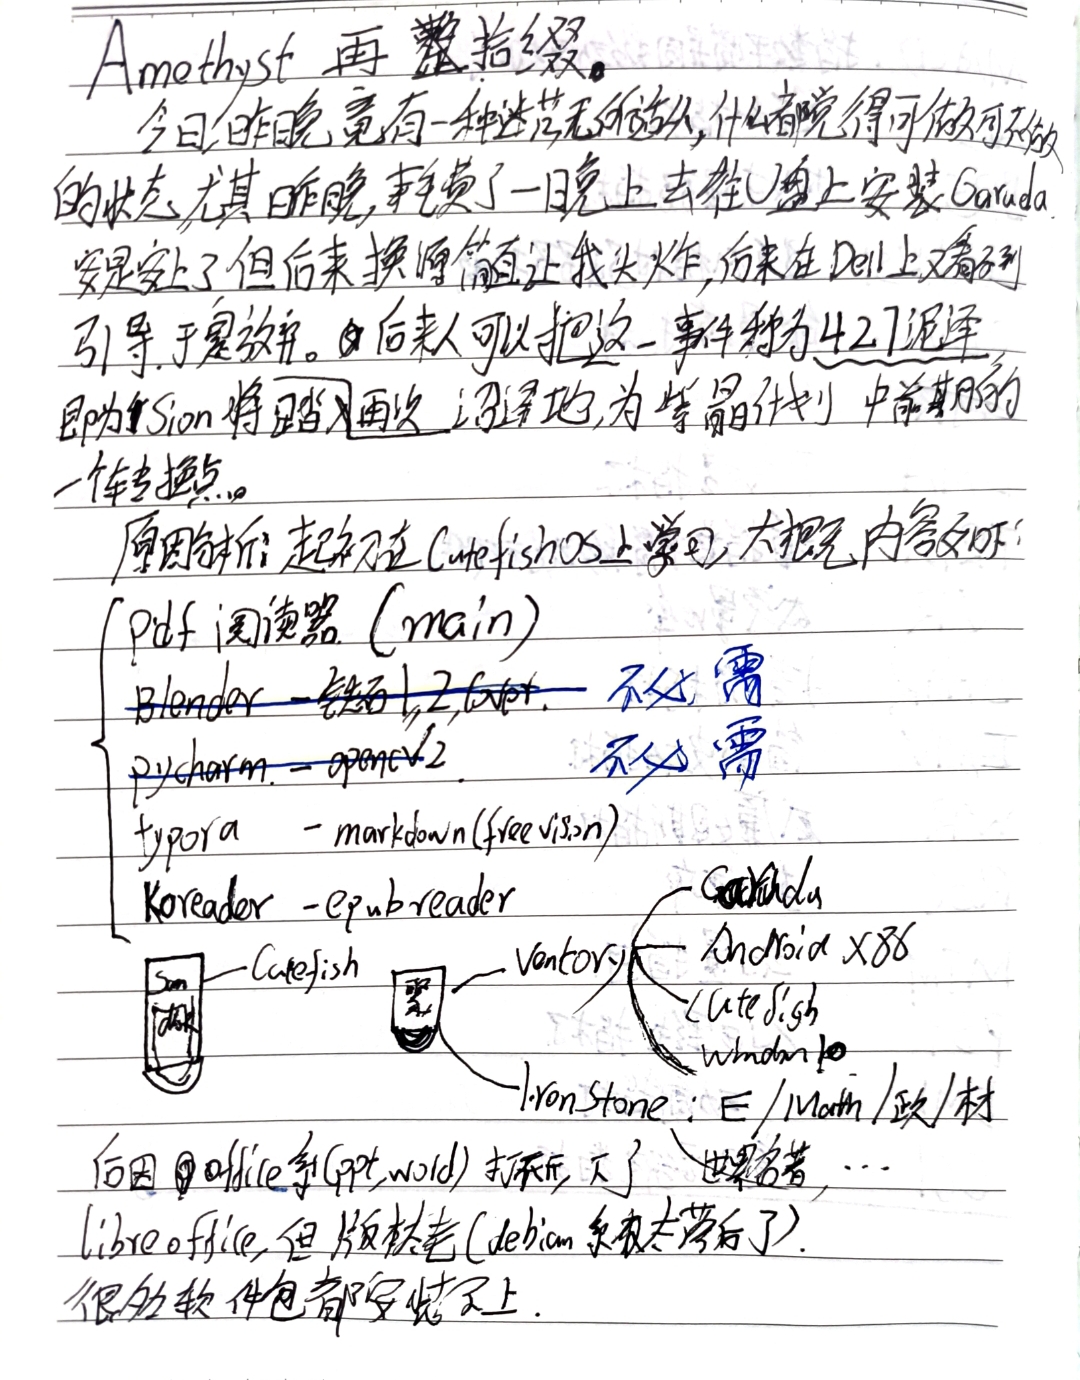 Amethyst 再整拾缀。
今日,昨晚竟有一种迷茫无所适从,什么都觉得可做可不做
的状态,尤其昨晚,耗费了一晚上去在U盘上安装Garuda.
安是安上了但后来换源简直让我头炸,后来在Dell上又看不到
引导.于是放弃。后来人可以把这一事件称为427泥泽
即为Sion将踏入再次沼泽地,为紫晶计划中前期的
一个转换点...。
原因分析:起初在CutefishOS上学习,大概内容如下:
Pdf 阅读器 (main)
Blender - 1,2, 不必需
pycharm. - opencv2. 不必需
typora - markdown(free vision)
Koreader - epub reader
San disk Cutefish
Ventory Garuda
Android X86
Cutefish
Window10
Iron Stone: E/Math/政/材
后因office系(ppt,wold)打不开,下了 世界名著,...
libreoffice,但版本老(debian系太落后了).
很多软件包都安装不上.